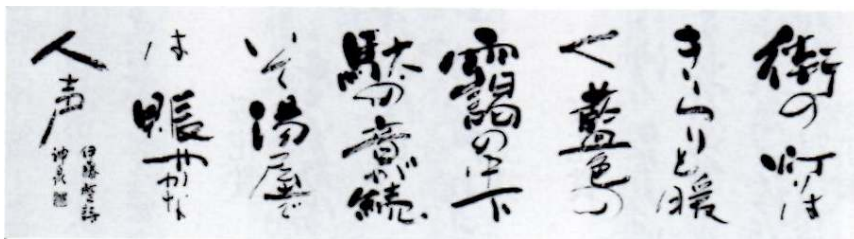 街の灯は
きらりと暖
く藍色の
靄の中下
駄の音が続
いて湯屋で
は賑やかな
人声
伊藤整詩